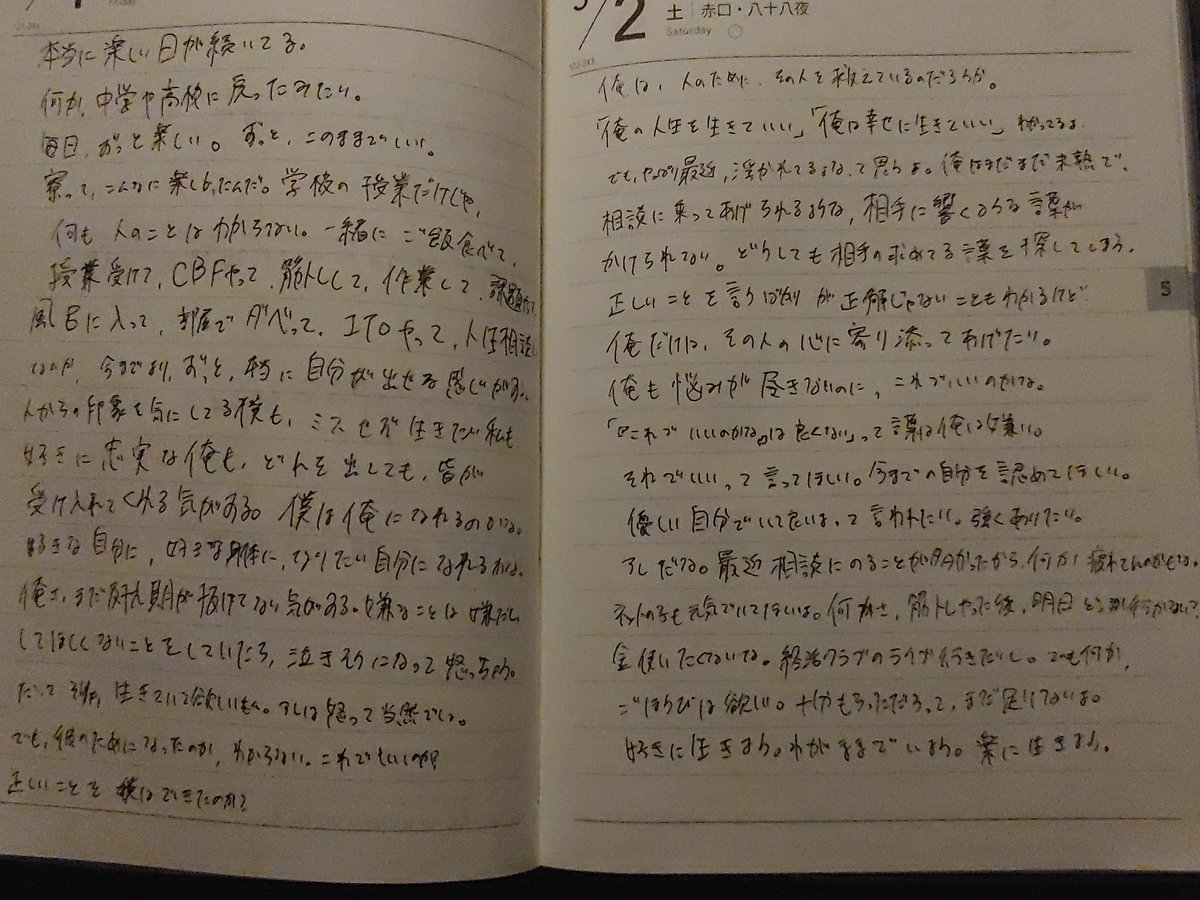 本当に楽しい日が続いてる。
何か、中学や高校に戻ったみたい。
毎日、ずっと楽しい。ずっと、このままでいい。
寮って、こんなに楽しかったんだ。学校の授業だけじゃ、
何も人のことはわからない。一緒にご飯食べて、
授業受けて、CBFやって、筋トレして、作業して、課題やって
風呂に入って、部屋でダベって、ITOやって、人生相談し
今までより、ずっと、本当に自分が出せる感じがある。
人からの印象を気にしてる僕も、ミスせず生きたい私も
好きに忠実な俺も、どれを出しても、皆が
受け入れてくれる気がある。僕は俺になれるのかな。
好きな自分に、好きな身体に、なりたい自分になれるかな。
俺さ、まだ反抗期が抜けてない気がある。嫌なことは嫌だし
してほしくないことをしていたら、泣きそうになって怒っちゃう。
だって 生きていて欲しいもん。そしは怒って当然でしょ。
でも、彼のためになったのか、わからない。これでもいいのか?
正しいことを僕はできたのか?
5/2
土 赤口・八十八夜
Saturday
俺は、人のために、その人を救えているのだろうか。
「俺の人生を生きていい」「俺は幸せに生きていい」わかってるよ
でも、やっぱり最近、浮かれてるよな、って思うよ。俺はまだまだ未熟で、
相談に乗ってあげられるような、相手に響くような言葉が
かけられない。どうしても相手の求めてる言葉を探してしまう。
正しいことを言うばかりが正解じゃないこともわかるけど
俺だけは、その人の心に寄り添ってあげたい。
俺も悩みが尽きないのに、これでいいのかな。
「『これでいいのかな。』は良くない」って言葉は俺は嫌い。
それでいい、って言ってほしい。今までの自分を認めてほしい。
優しい自分でいて良いよ、って言われたい。強くありたい。
だな。最近相談にのることが多かったから、何か疲れてんのかもな。
ネットの子も元気でいてほしいよ。何かさ、筋トレやった後、明日どっか行かない?
金使いたくないな。終活クラブのライブ行きたいし。でも何か、
ごほうびは欲しい。十分もらっただろって、まだ足りてないよ。
好きに生きよう。わがままでいよう。楽に生きよう。
5